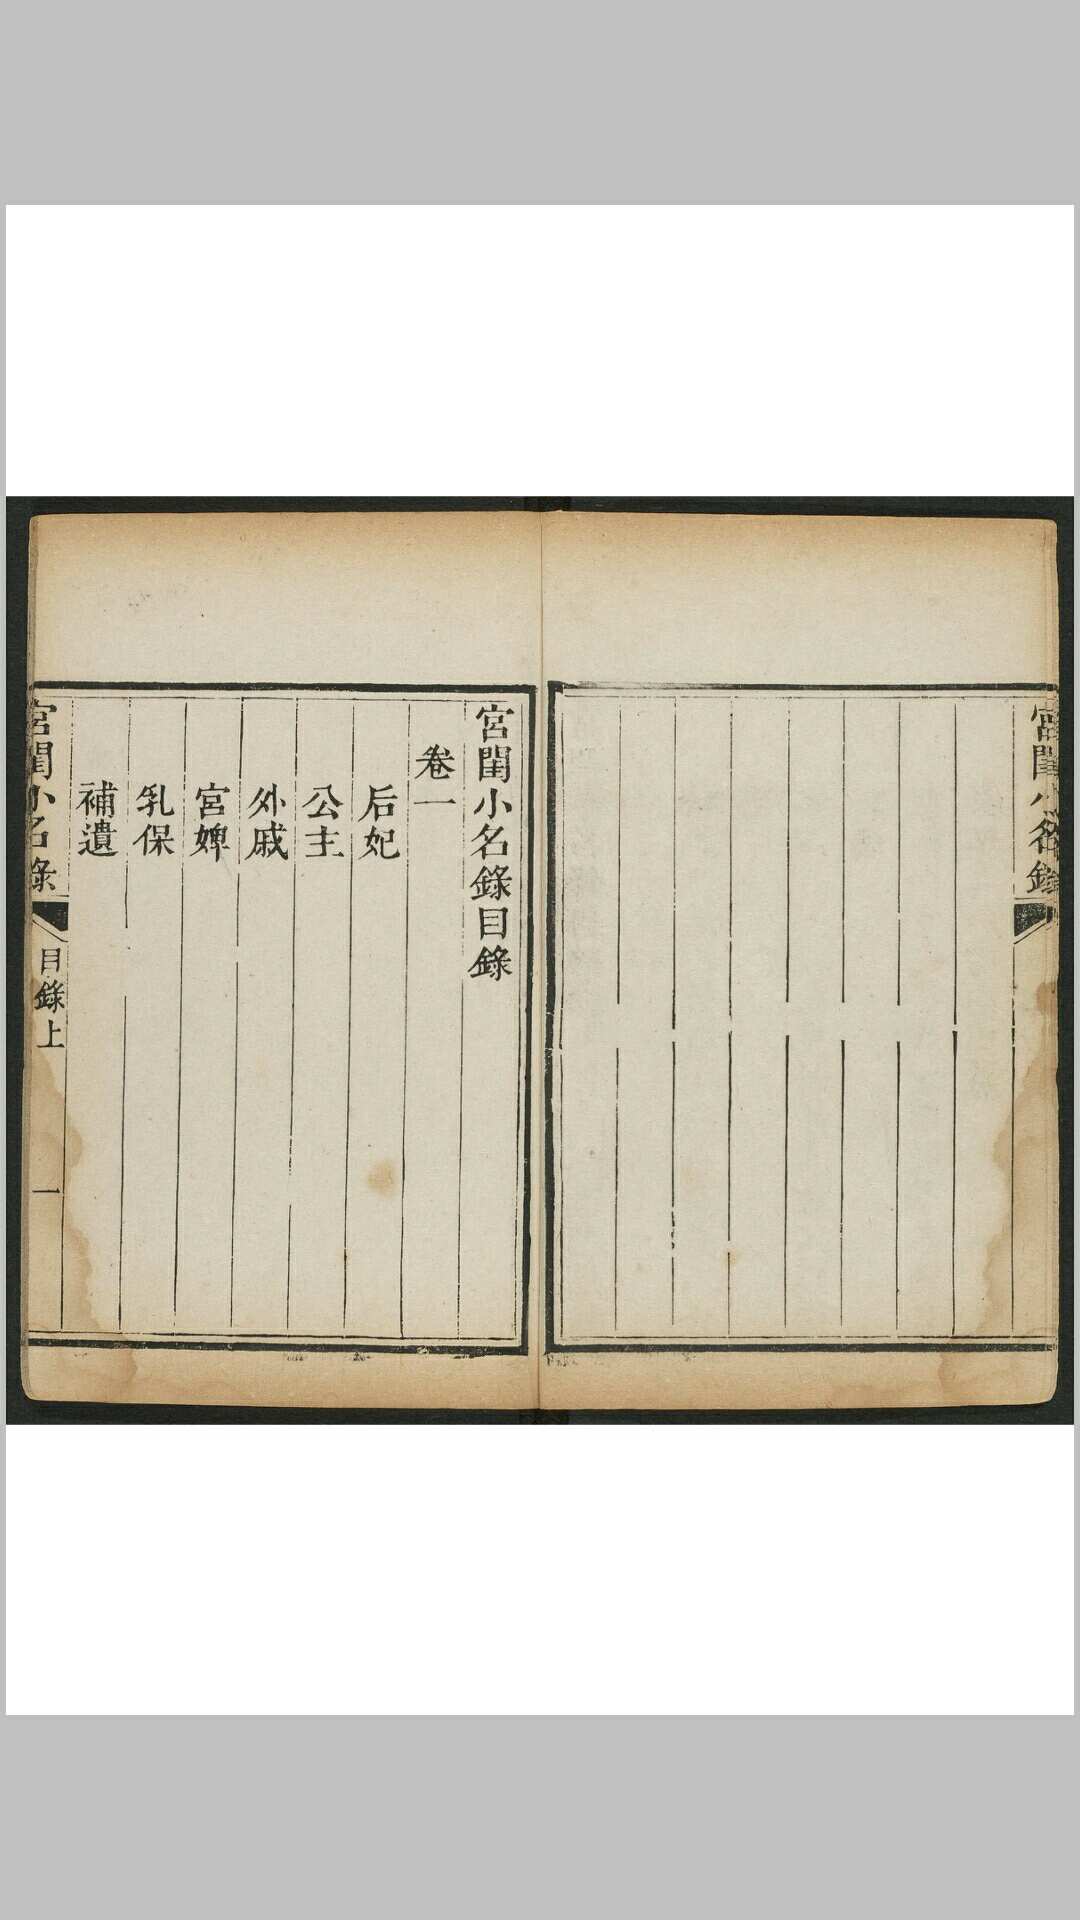 宮閨小名錄
宮閨小名錄目錄
卷一
后妃
公主
外戚
宮婢
乳保
補遺
宮閨小名錄
目錄上
一